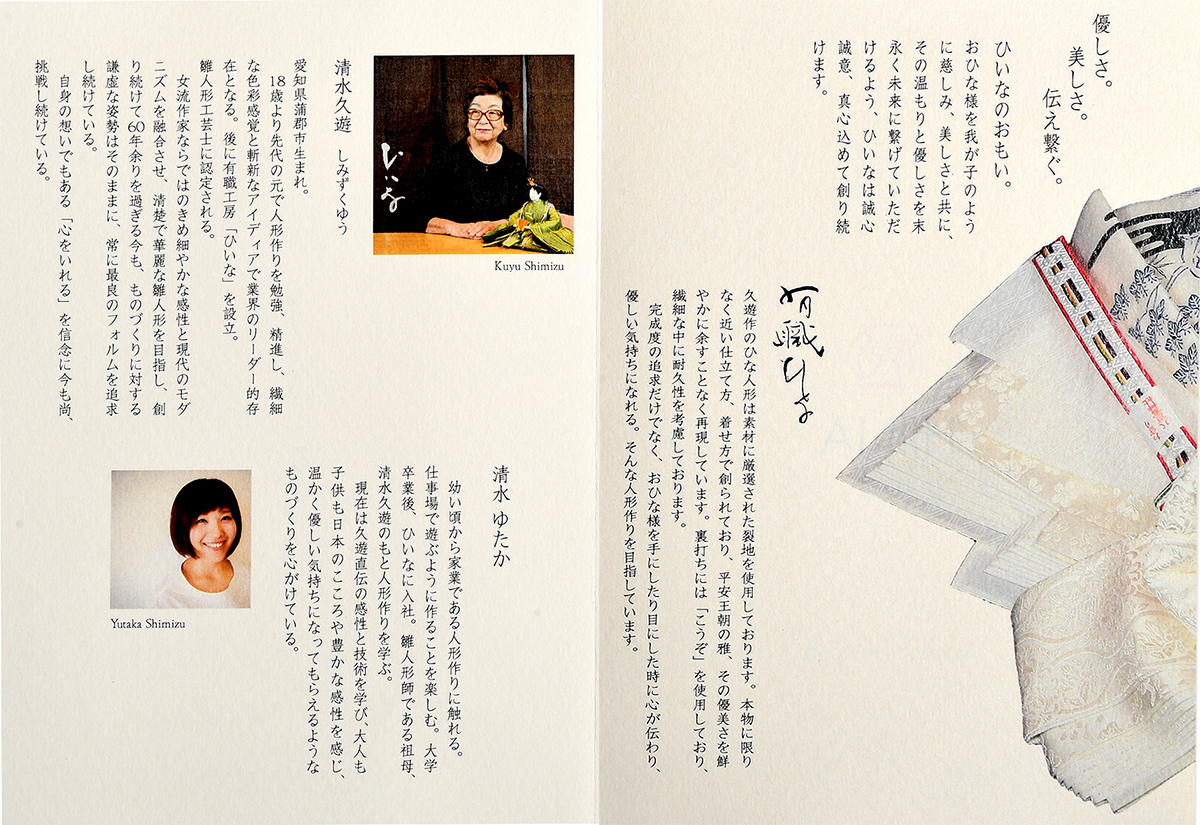 優しさ。
美しさ。
伝え繋ぐ。
ひいなのおもい。
おひな様を我が子のよう
に慈しみ、美しさと共に、
その温もりと優しさを末
永く未来に繋げていただ
けるよう、ひいなは誠心
誠意、真心込めて創り続
けます。
有職ひいな
久遊作のひな人形は素材に厳選された裂地を使用しております。本物に限り
なく近い仕立て方、着せ方で創られており、平安王朝の雅、その優美さを鮮
やかに余すことなく再現しています。裏打ちには「こうぞ」を使用しており、
繊細な中に耐久性を考慮しております。
完成度の追求だけでなく、おひな様を手にしたり目にした時に心が伝わり、
優しい気持ちになれる。そんな人形作りを目指しています。
ひいな
Kuyu Shimizu
清水久遊 しみずくゆう
愛知県蒲郡市生まれ。
18歳より先代の元で人形作りを勉強、精進し、繊細
な色彩感覚と斬新なアイディアで業界のリーダー的存
在となる。後に有職工房「ひいな」を設立。
雛人形工芸士に認定される。
女流作家ならではのきめ細やかな感性と現代のモダ
ニズムを融合させ、清楚で華麗な雛人形を目指し、創
り続けて60年余りを過ぎる今も、ものづくりに対する
謙虚な姿勢はそのままに、常に最良のフォルムを追求
し続けている。
自身の想いでもある「心をいれる」を信念に今も尚、
挑戦し続けている。
清水 ゆたか
幼い頃から家業である人形作りに触れる。
仕事場で遊ぶように作ることを楽しむ。大学
卒業後、ひいなに入社。雛人形師である祖母、
清水久遊のもと人形作りを学ぶ。
現在は久遊直伝の感性と技術を学び、大人も
子供も日本のこころや豊かな感性を感じ、
温かく優しい気持ちになってもらえるような
ものづくりを心がけている。
Yutaka Shimizu